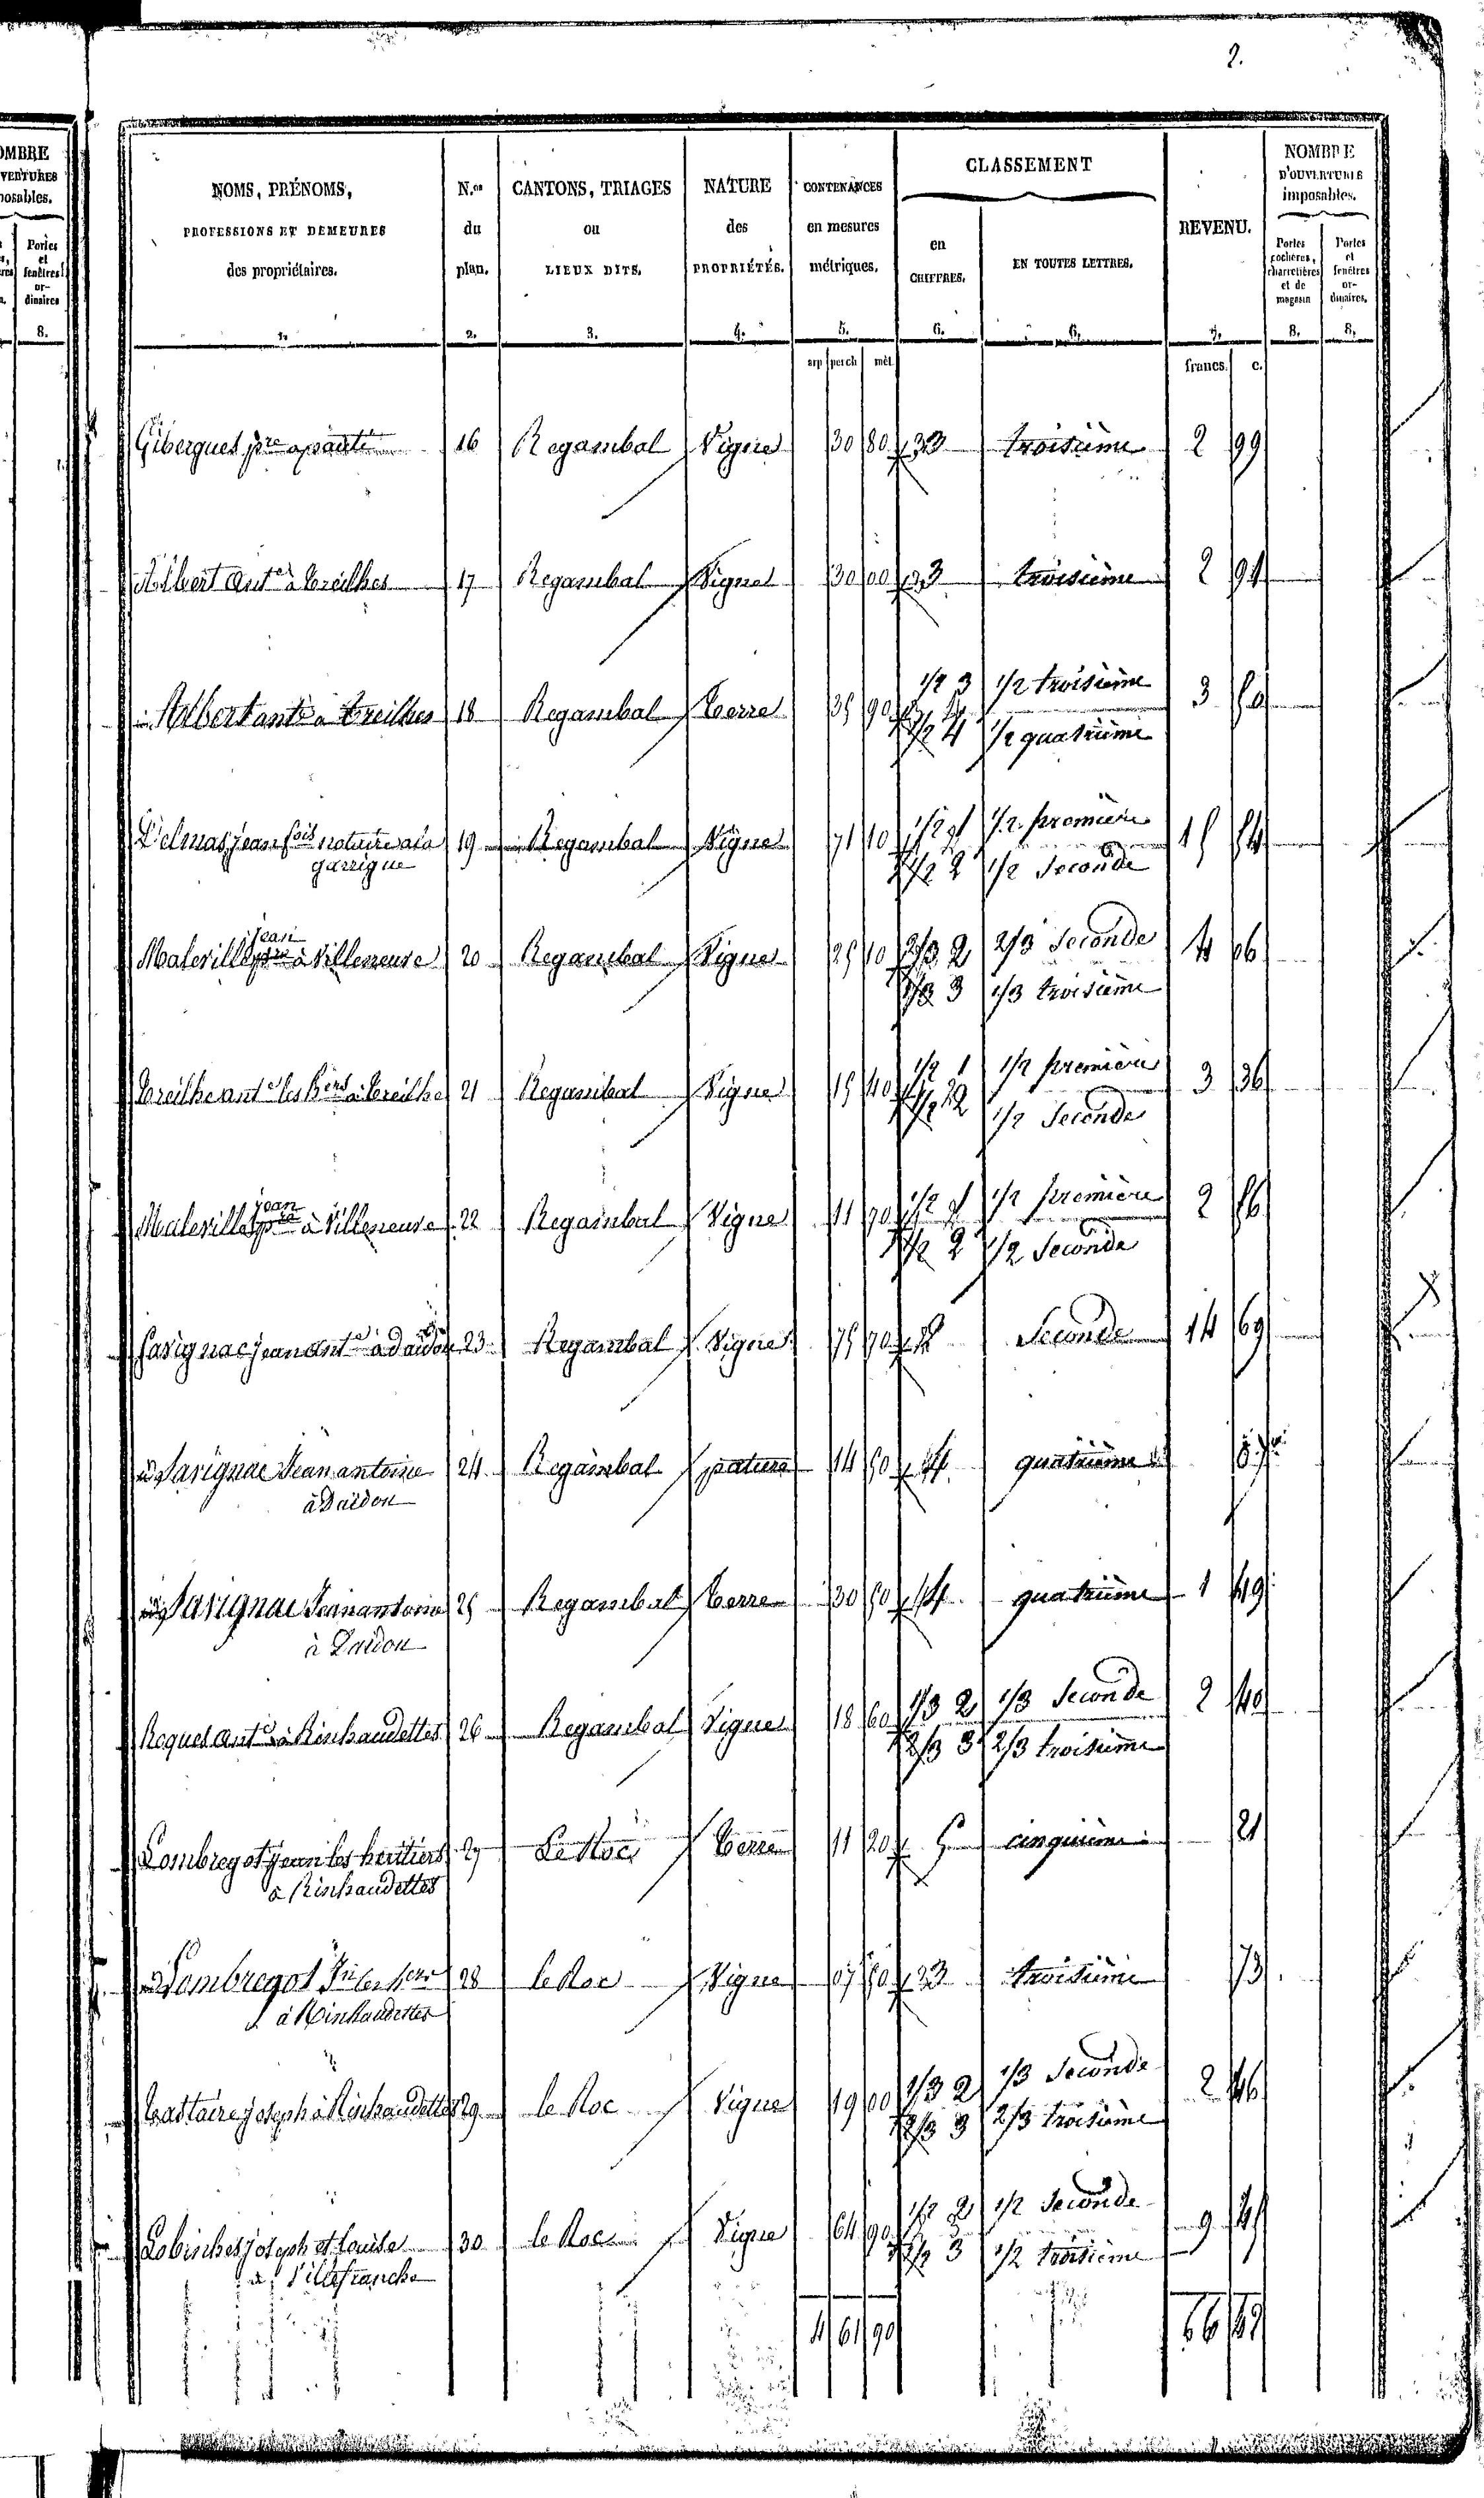 2.
OMBRE
VERTURES
posables.
Portes
et
fenêtres
or-
dinaires
8.
NOMS, PRÉNOMS,
PROFESSIONS ET DEMEURES
des propriétaires.
1.
N.os
du
plan.
2.
CANTONS, TRIAGES
ou
LIEUX DITS.
3.
NATURE
des
PROPRIÉTÉS.
4.
CONTENANCES
en mesures
métriques.
5.
CLASSEMENT
en
CHIFFRES.
6.
EN TOUTES LETTRES.
6.
REVENU.
7.
NOMBRE
D'OUVERTURES
imposables.
Portes
cochères,
charretières
et de
magasin
8.
Portes
et
fenêtres
or-
dinaires.
8.
arp perch mèt. francs. c.
Gibergues pre 16 Regambal Vigne 30 80 3 troisième 2 99
Albert ante à treilhes 17 Regambal Vigne 30 00 3 troisième 2 91
Albert ante à treilhes 18 Regambal terre 35 90 1/2 3 1/2 troisième 3
1/2 4 1/2 quatrième
Delmas jean fois notaire a la 19 Regambal Vigne 71 10 1/2 1 1/2 première 15 84
garrigue
1/2 2 1/2 Seconde
jean
Maleville à Villeneuve 20 Regambal Vigne 25 10 2/3 2 2/3 Seconde 4 06
1/3 3 1/3 troisième
treilhe ante les hers à treilhe 21 Regambal Vigne 15 40 1/2 1 1/2 première 3 36
1/2 2 1/2 Seconde
jean
Maleville à Villeneuve 22 Regambal Vigne 11 70 1/2 1 1/2 première 2 56
1/2 2 1/2 Seconde
Savignac jean ante à daidou 23 Regambal Vigne 75 70 2 Seconde 14 69
Savignac Jean antoine 24 Regambal pature 14 50 4 quatrième
à Daidou
Savignac Jean antoine 25 Regambal terre 30 50 4 quatrième 1 49
à Daidou
Roques ante à Rinhaudettes 26 Regambal Vigne 18 60 1/3 2 1/3 Seconde 2 40
2/3 3 2/3 troisième
Lombregot jean les héritiers 27 Le Roc terre 11 20 5 cinquième 21
à Rinhaudettes
Lombregot Jn les hers 28 le Roc Vigne 07 50 3 troisième 73
à Rinhaudettes
joseph à Rinhaudettes 29 le Roc Vigne 19 00 1/3 2 1/3 Seconde 2 46
2/3 3 2/3 troisième
joseph et louise 30 le Roc Vigne 64 90 1/2 2 1/2 Seconde 9 45
à Villefranche
1/2 3 1/2 troisième
4 61 90 66